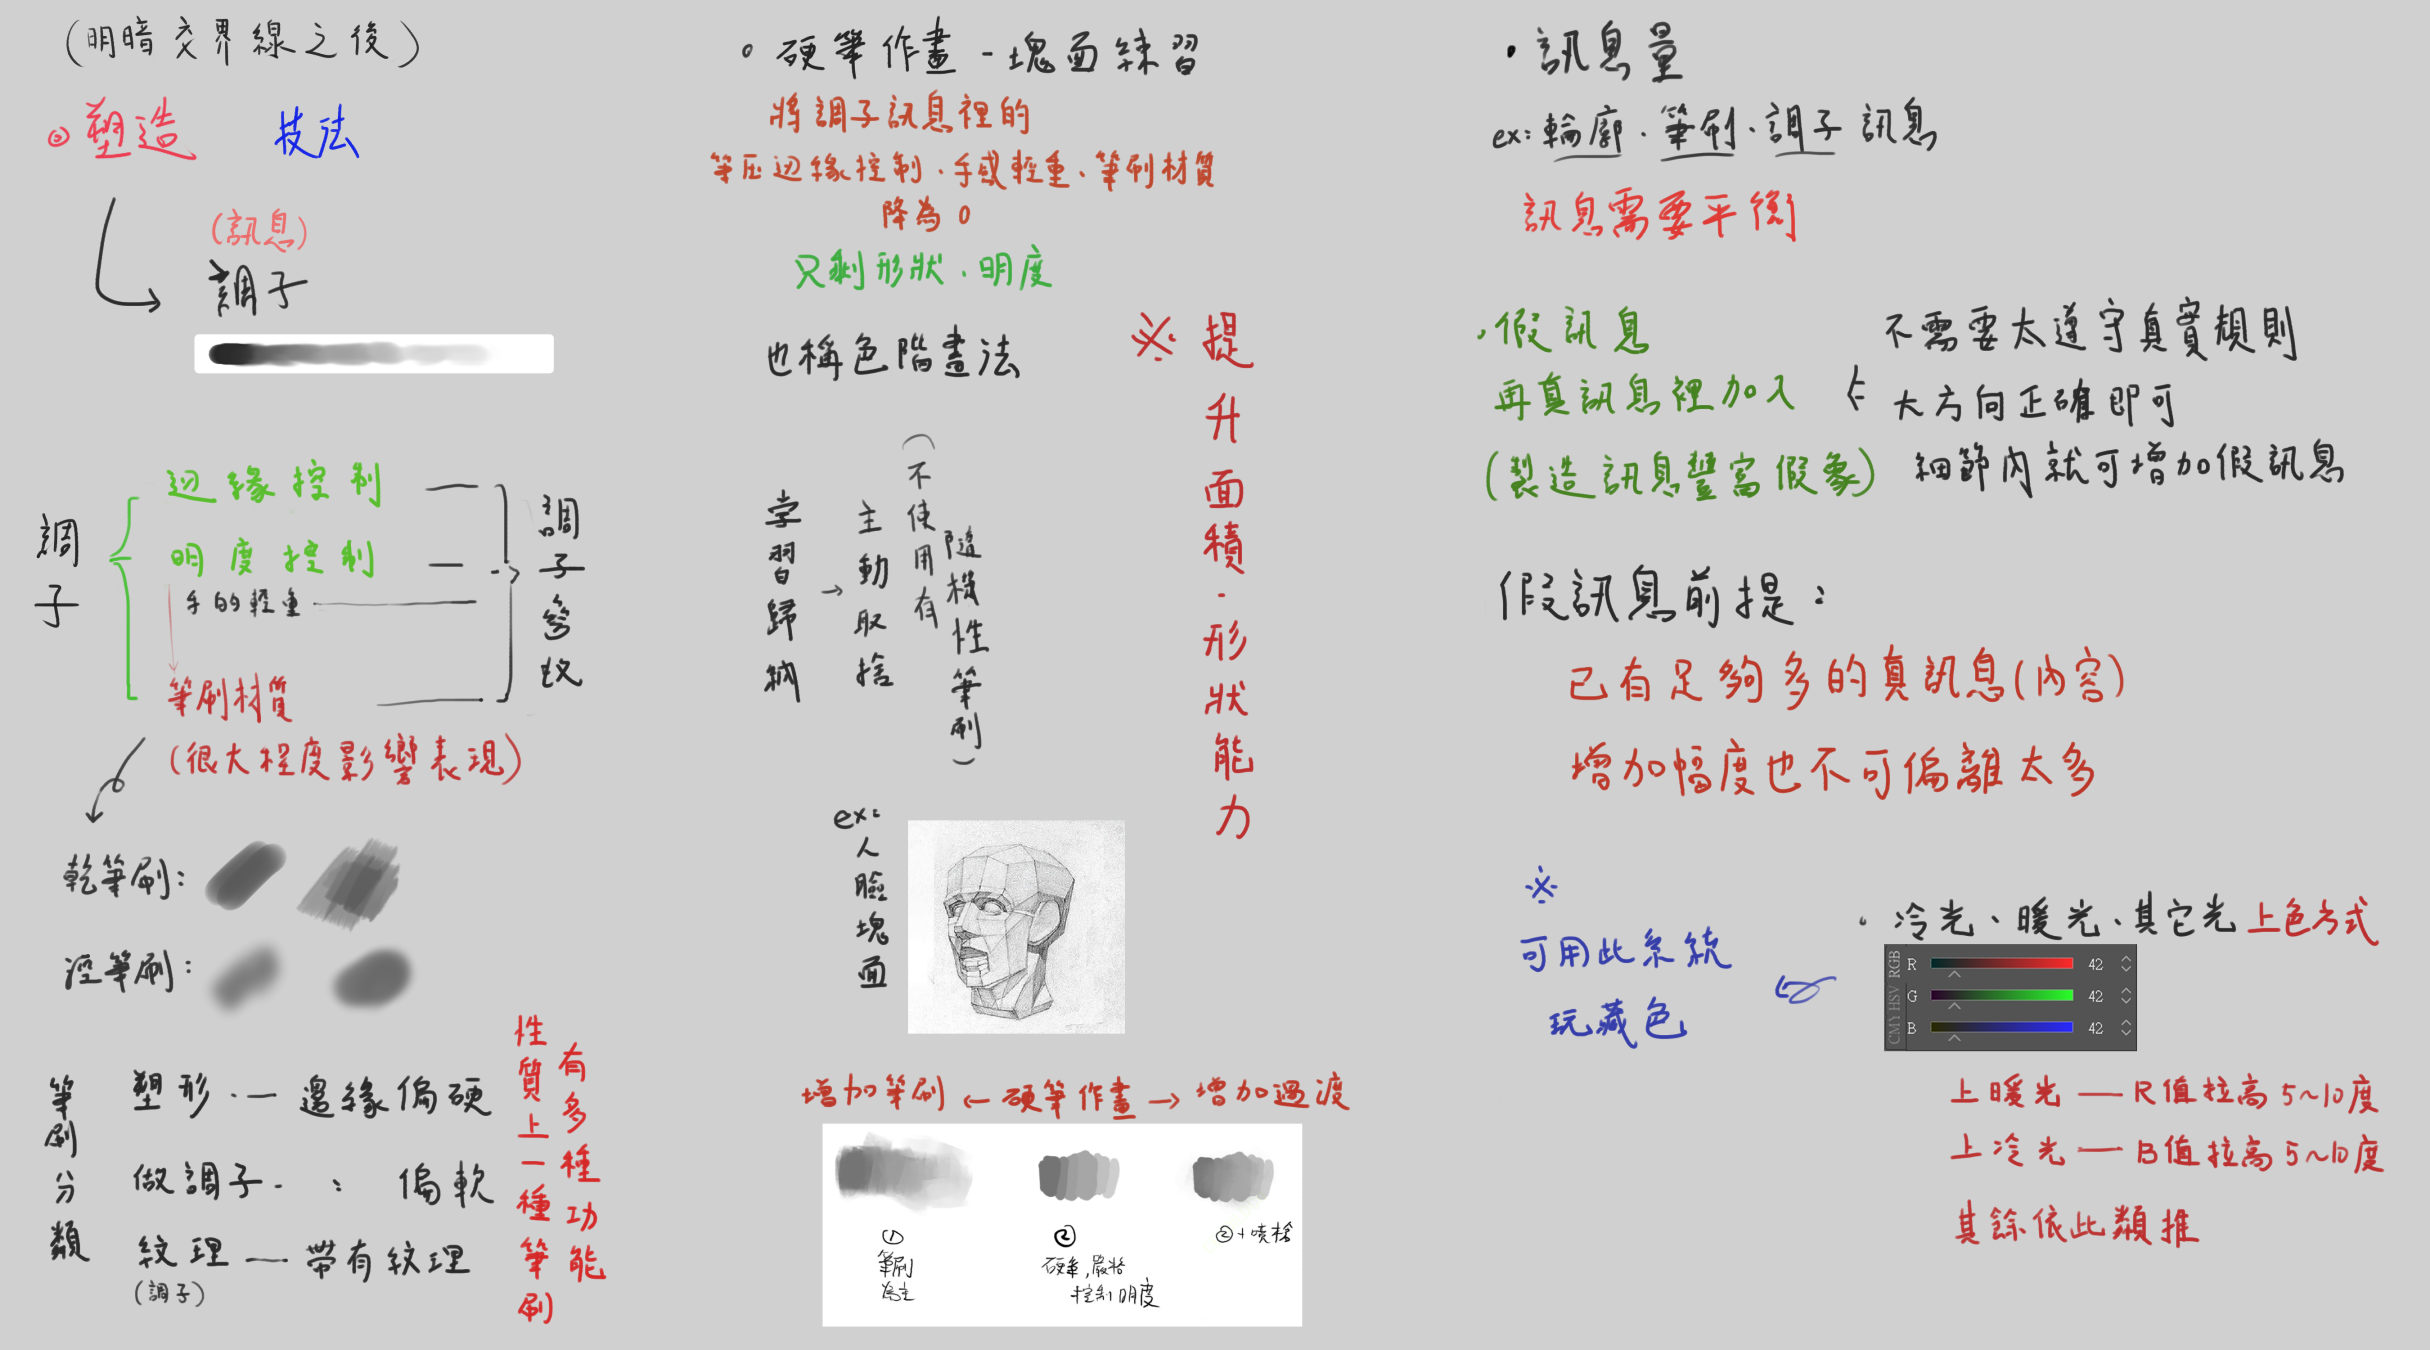 (明暗交界線之後)
塑造
技法
(訊息)
調子
調子
边緣控制
明度控制
手的輕重
筆刷材質
(很大程度影響表現)
調子等於
乾筆刷:
溼筆刷:
筆刷分類
塑形 — 邊緣偏硬
做調子 : 偏軟
紋理 — 帶有紋理
(調子)
性質上一種筆刷
有多種功能
硬筆作畫 - 塊面練習
將調子訊息裡的
筆压边緣控制、手感輕重、筆刷材質
降為0
只剩形狀.明度
也稱色階畫法
※ 提升面積.形狀能力
学習歸納
→ 主動取捨
(不使用有
隨機性筆刷)
ex:人臉塊面
增加筆刷 ← 硬筆作畫 → 增加過渡
①
筆刷
為主
②
硬筆,嚴格
控制明度
②+噴槍
訊息量
ex:輪廓.筆刷.調子訊息
訊息需要平衡
假訊息
再真訊息裡加入
(製造訊息豐富假象)
不需要太遵守真實規則
大方向正確即可
細節內就可增加假訊息
假訊息前提:
已有足夠多的真訊息(內容)
增加幅度也不可偏離太多
※
可用此系統
玩藏色
冷光、暖光、其它光上色方式
RGB
HSV
CMY
R 42
G 42
B 42
上暖光 — R值拉高5~10度
上冷光 — B值拉高5~10度
其餘依此類推